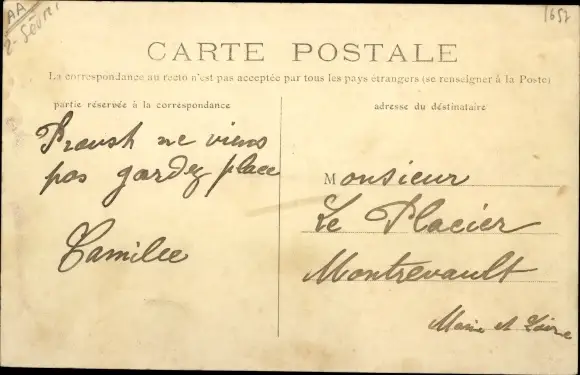 AA
2-Sèvres
1657
CARTE POSTALE
La correspondance au recto n'est pas acceptée par tous les pays étrangers (se renseigner à la Poste)
partie réservée à la correspondance
adresse du déstinataire
ne viens
pas gardez place
Camille
Monsieur
Le Placier
Montrevault
Maine et Loire